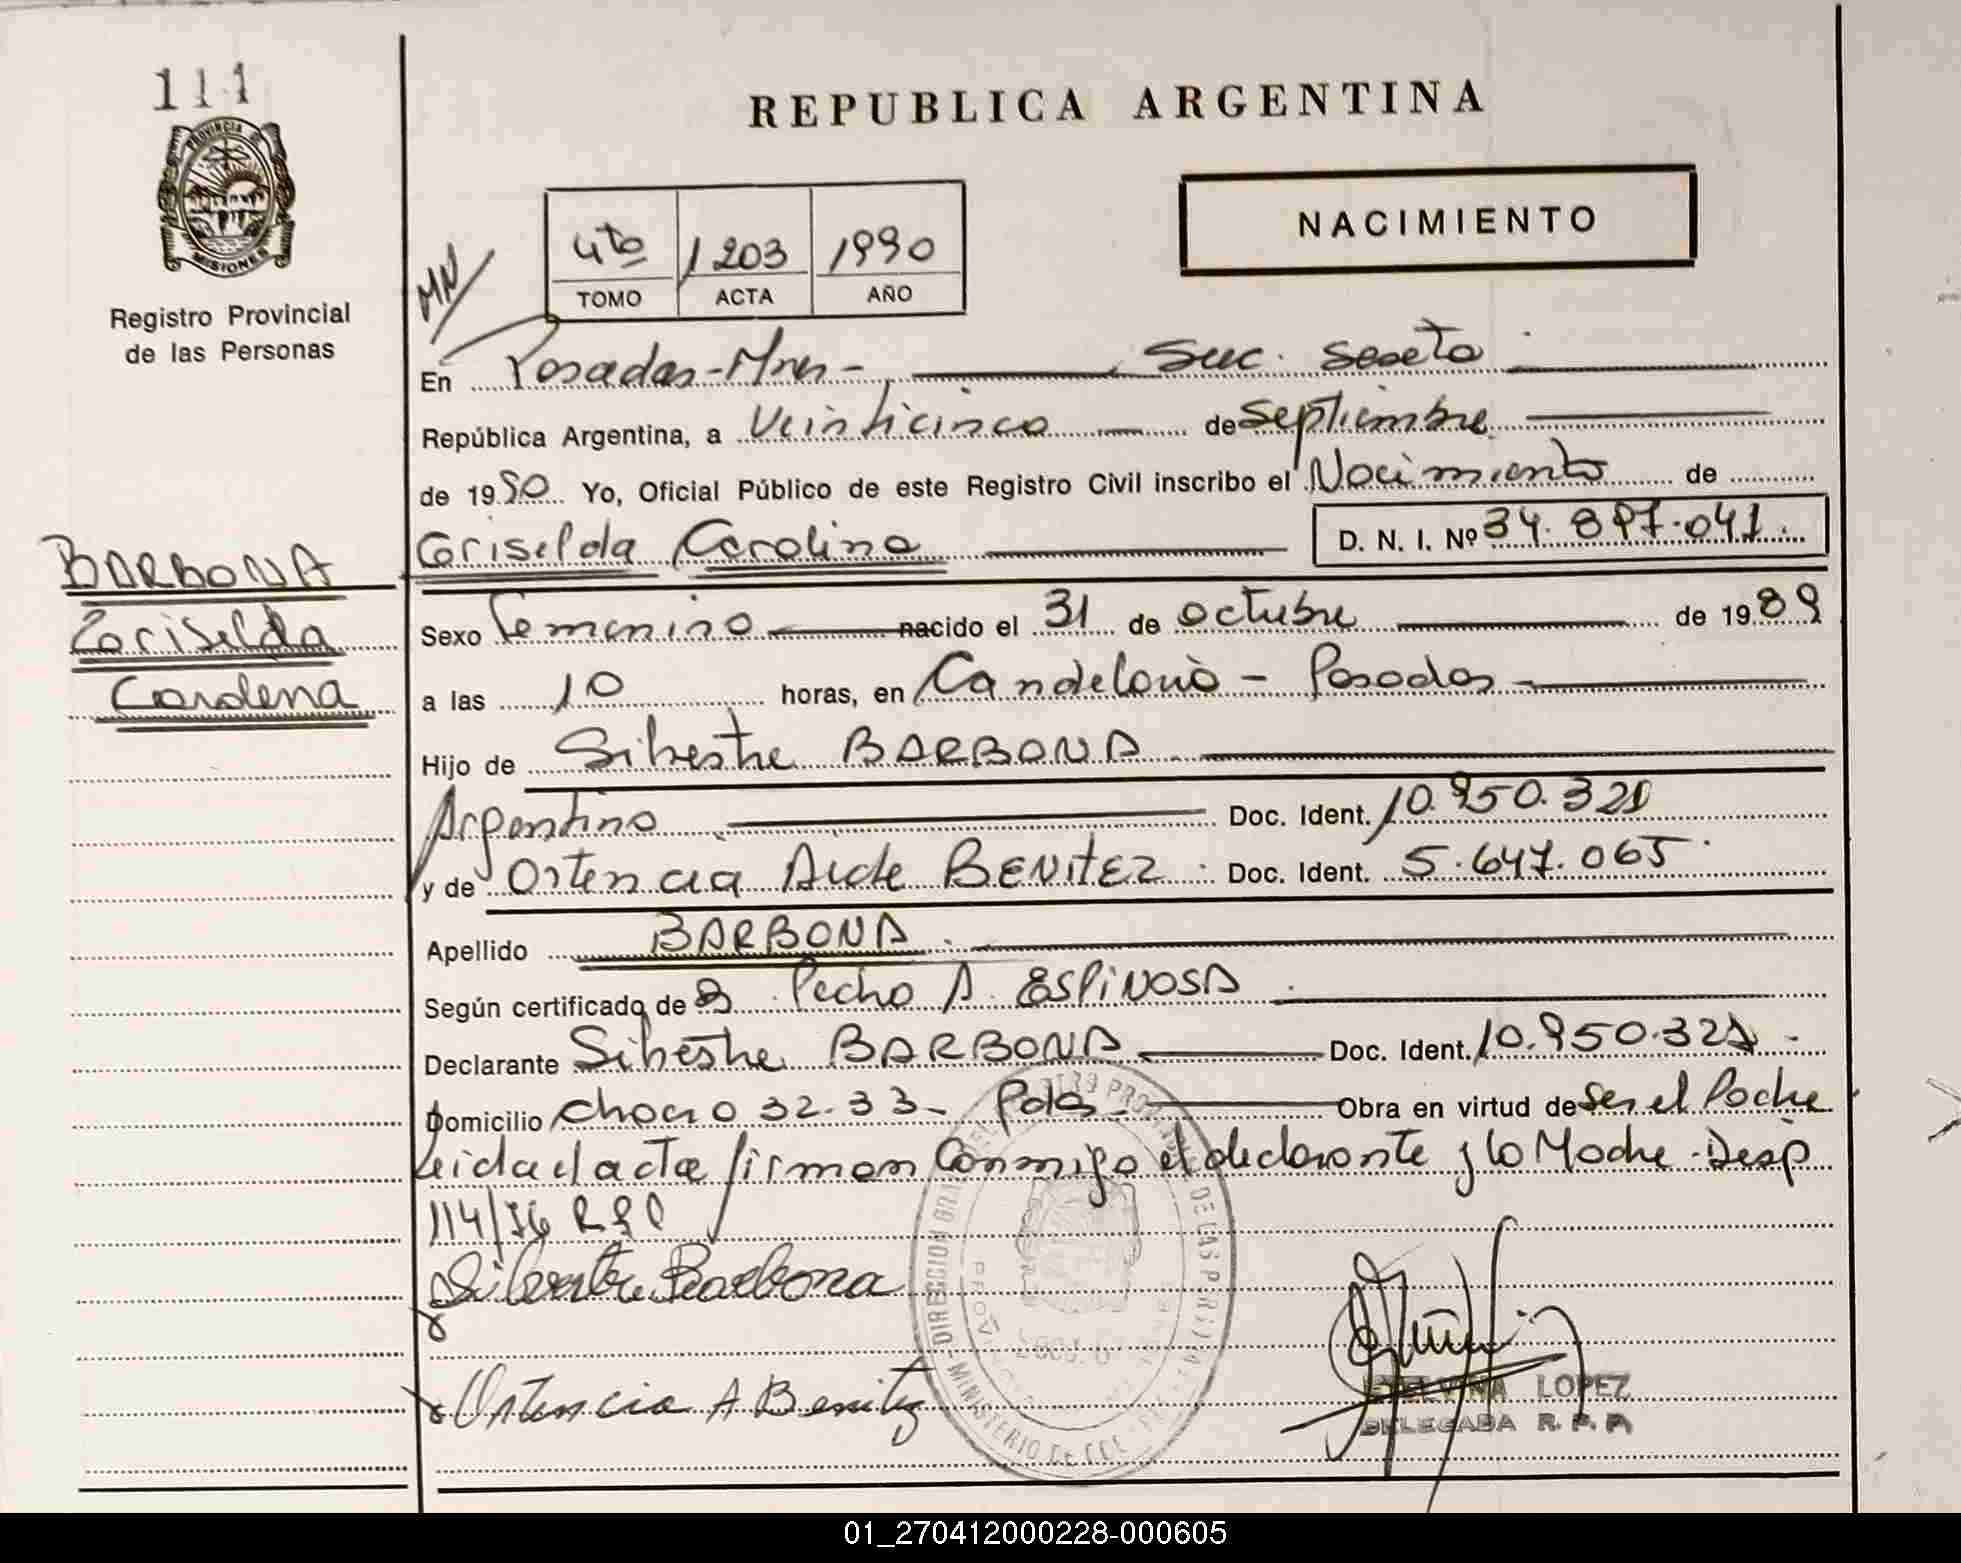 111
PROVINCIA DE
MISIONES
Registro Provincial
de las Personas
REPUBLICA ARGENTINA
NACIMIENTO
4to 1203 1990
TOMO ACTA AÑO
En Posadas - Mnes - Suc. Sexta
República Argentina, a Veinticinco de Septiembre
de 1990 Yo, Oficial Público de este Registro Civil inscribo el Nacimiento de
Griselda Carolina D. N. I. Nº 34.897.041.
BARBONA
Griselda
Carolina
Sexo Femenino nacido el 31 de octubre de 1989
a las 10 horas, en Candelaria - Posadas -
Hijo de Silvestre BARBONA
Argentino Doc. Ident. 10.950.321
y de Ortencia Aide BENITEZ Doc. Ident. 5.647.065.
Apellido BARBONA
Según certificado de Pedro A. ESPINOSA
Declarante Silvestre BARBONA Doc. Ident. 10.950.321 -
Domicilio Chacra 32.33 - Pdas - Obra en virtud de Ser el Padre
Leida el acta firman Conmigo el declarante y la Madre - Disp
114/76 R.P.P
Silvestre Barbona
Ortencia A Benitez
ETELVINA LOPEZ
DELEGADA R. P. P
01_270412000228-000605